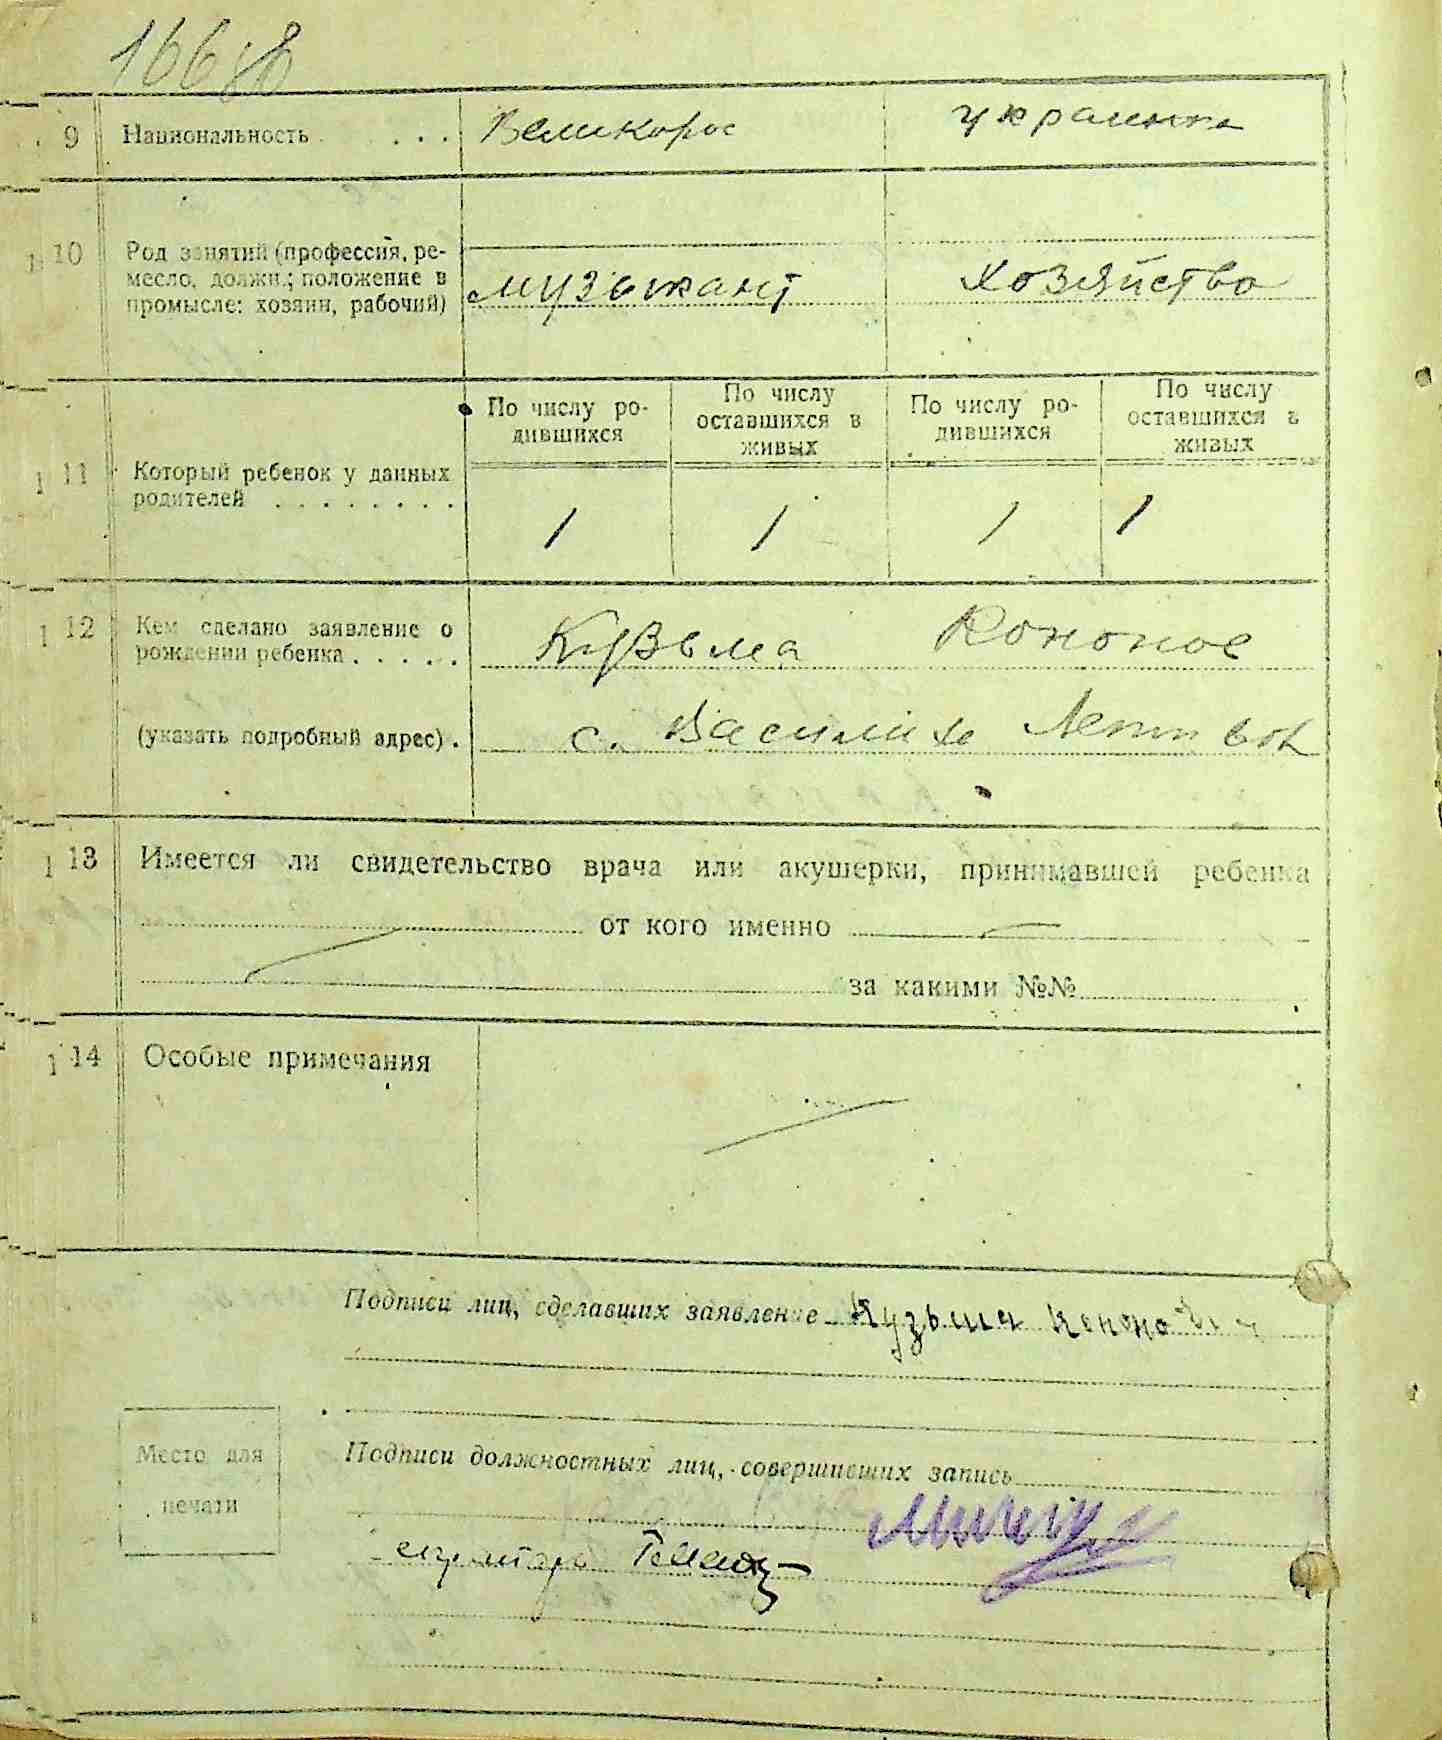 9 Национальность . . . . Великорос украинка
10 Род занятий (профессия, ре-
месло, должн.; положение в
промысле: хозяин, рабочий) музыкант хозяйство
По числу ро-
дившихся
По числу
оставшихся в
живых
По числу ро-
дившихся
По числу
оставшихся в
живых
11 Который ребенок у данных
родителей . . . . . . . .
1 1 1 1
12 Кем сделано заявление о
рождении ребенка . . . . . Кузьма
(указать подробный адрес) . с.
13 Имеется ли свидетельство врача или акушерки, принимавшей ребенка
от кого именно
за какими №№
14 Особые примечания
Подписи лиц, сделавших заявление Кузьма
Место для
печати
Подписи должностных лиц, совершивших запись